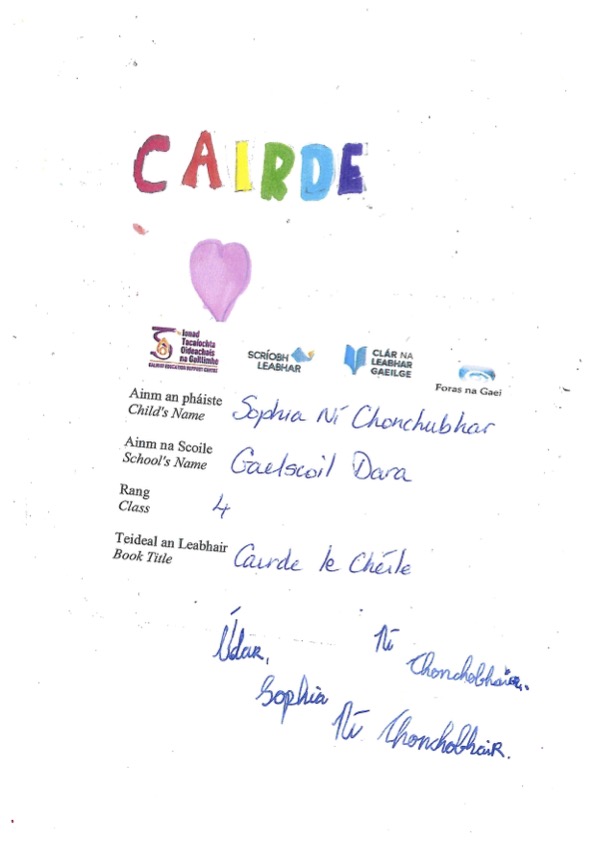 CAIRDE
Ionad
Tacaíochta
Oideachais
na Gaillimhe
GALWAY EDUCATION SUPPORT CENTRE
SCRÍOBH
LEABHAR
CLÁR NA
LEABHAR
GAEILGE
Foras na Gaei
Ainm an pháiste
Child's Name
Sophia Ní Chonchubhar
Ainm na Scoile
School's Name
Gaelscoil Dara
Rang
Class
4
Teideal an Leabhair
Book Title
Cairde le Chéile
Údar,
Ní
Chonchobhair.
Sophia
Ní Chonchobhair.